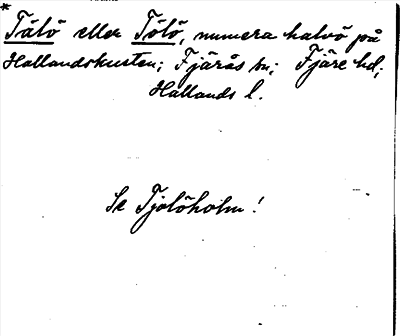 *
Tålö eller Tölö, numera halvö på
Hallandskusten; Fjärås sn; Fjäre hd;
Hallands l.
Se Tjolöholm!